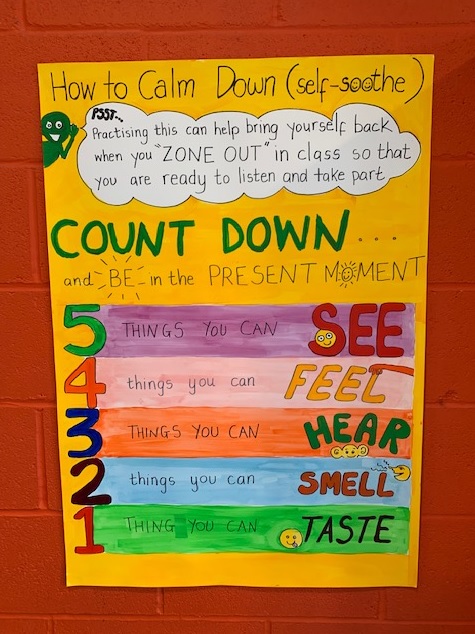 How to Calm Down (self-soothe)
PSST...
Practising this can help bring yourself back
when you "ZONE OUT" in class so that
you are ready to listen and take part
COUNT DOWN...
and BE in the PRESENT MOMENT
5 THINGS YOU CAN SEE
4 things you can FEEL
3 THINGS YOU CAN HEAR
2 things you can SMELL
1 THING YOU CAN TASTE